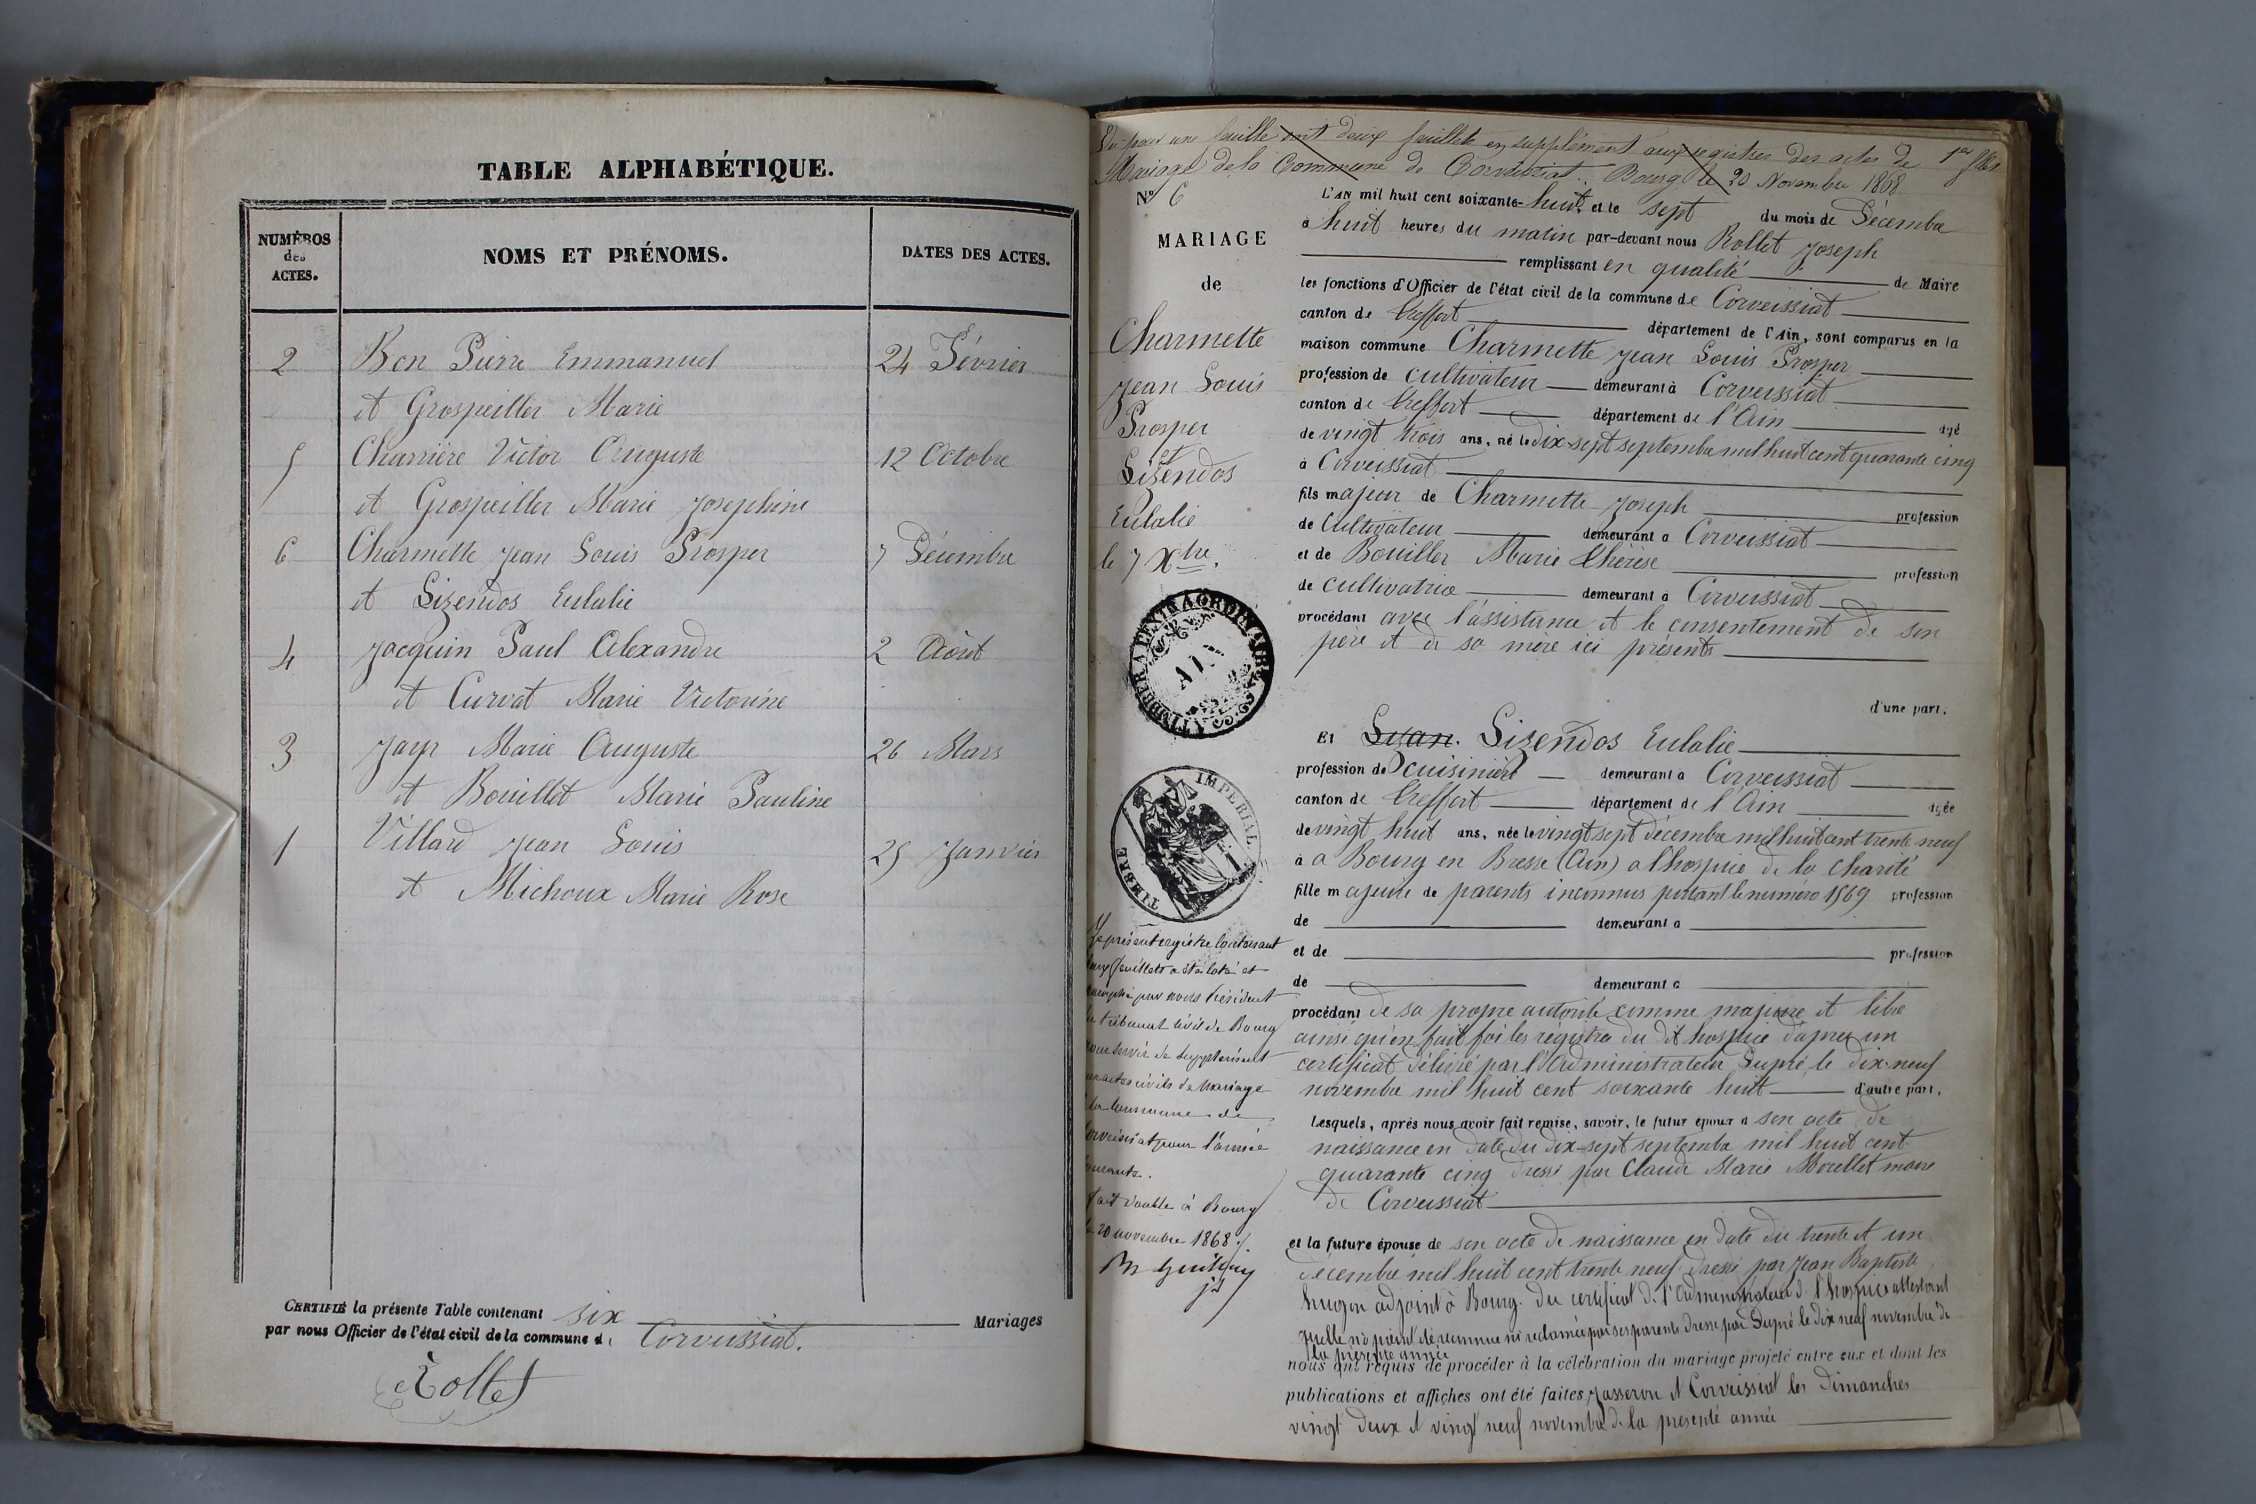 TABLE ALPHABÉTIQUE.
NUMÉROS des ACTES.
NOMS ET PRÉNOMS.
DATES DES ACTES.
2 Bon Pierre Emmanuel 24 Février
et Grospeiller Marie
5 Charrière Victor Auguste 12 Octobre
et Grospeiller Marie Josephine
6 Charmette Jean Louis Prosper 7 Décembre
et Lizendos Eulalie
4 Jacquin Paul Alexandre 2 Août
et Curvat Marie Victorine
3 Jayr Marie Auguste 26 Mars
et Bouillet Marie Pauline
1 Villard Jean Louis 25 Janvier
et Michoux Marie Rose
CERTIFIÉ la présente Table contenant six Mariages
par nous Officier de l'état civil de la commune de Corveissiat.
Rollet
une feuille soit deux feuillets en supplément aux registres des actes de 1er
Mariage de la Commune de Corveissiat. Bourg le 20 Novembre 1868
N° 6
MARIAGE
de
Charmette
Jean Louis
Prosper
et
Lizendos
Eulalie
le 7 Xbre.
A TIMBRER A L'EXTRAORDINAIRE
AIN
TIMBRE IMPERIAL
Le présent registre contenant
deux feuillets a été coté et
paraphé par nous Président
du tribunal civil de Bourg
pour servir de supplément
aux actes civils de mariage
de la commune de
Corveissiat pour l'année
courante.
Fait double à Bourg
le 20 novembre 1868
L'AN mil huit cent soixante-huit et le sept du mois de Décembre
à huit heures du matin par-devant nous Rollet Joseph
remplissant en qualité de Maire
les fonctions d'Officier de l'état civil de la commune de Corveissiat
canton de Treffort département de l'Ain, sont comparus en la
maison commune Charmette Jean Louis Prosper
profession de cultivateur demeurant à Corveissiat
canton de Treffort département de l'Ain agé
de vingt trois ans, né le dix-sept septembre mil huit cent quarante cinq
à Corveissiat
fils majeur de Charmette Joseph profession
de Cultivateur demeurant à Corveissiat
et de Bouiller Marie Thérèse profession
de cultivatrice demeurant à Corveissiat
procédant avec l'assistance et le consentement de son
père et de sa mère ici présents
d'une part.
Et Lizan. Lizendos Eulalie
profession de cuisinière demeurant à Corveissiat
canton de Treffort département de l'Ain agée
de vingt huit ans, née le vingt sept décembre mil huit cent trente neuf
à a Bourg en Bresse (Ain) a l'hospice de la charité
fille majeure de parents inconnus portant le numéro 1569 profession
de demeurant à
et de profession
de demeurant à
procédant de sa propre autorité comme majeure et libre
ainsi qu'en fait foi les régistres du dit hospice d'après un
certificat délivré par l'Administrateur Dupré le dix-neuf
novembre mil huit cent soixante huit d'autre part.
Lesquels, après nous avoir fait remise, savoir, le futur époux a son acte de
naissance en date du dix-sept septembre mil huit cent
quarante cinq dressé par Claude Marie Morellet maire
de Corveissiat
et la future épouse de son acte de naissance en date du trente et un
décembre mil huit cent trente neuf dressé par Jean Baptiste
hugon adjoint à Bourg. du certificat de l'administrateur de l'hospice attestant
quelle n'a point été reconnue ni reclamée par ses parents dressé par Dupré le dix neuf novembre de
la présente année
nous ont requis de procéder à la célébration du mariage projeté entre eux et dont les
publications et affiches ont été faites Jasseron et Corveissiat les dimanches
vingt deux et vingt neuf novembre de la presente année